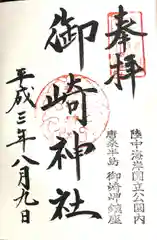 奉拝
陸中海岸国立公園内
唐桑半島 御崎岬鎮座
御崎神社
平成三年八月九日